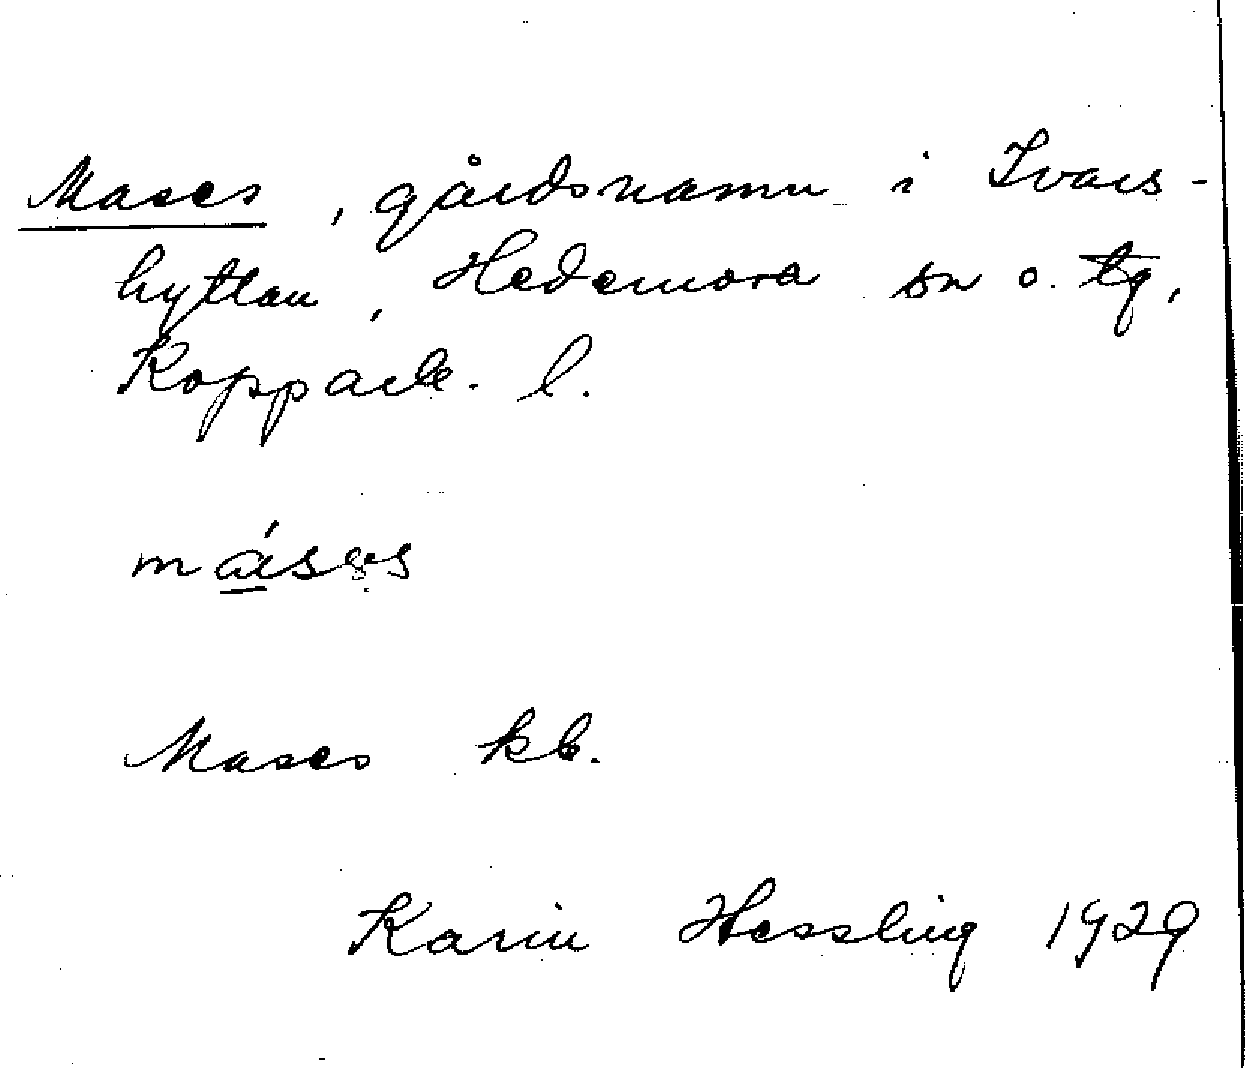 Mases, gårdsnamn i Ivars-
hyttan, Hedemora sn o. tg,
Kopparb. l.
másəs
Mases kb.
Karin Hessling 1929